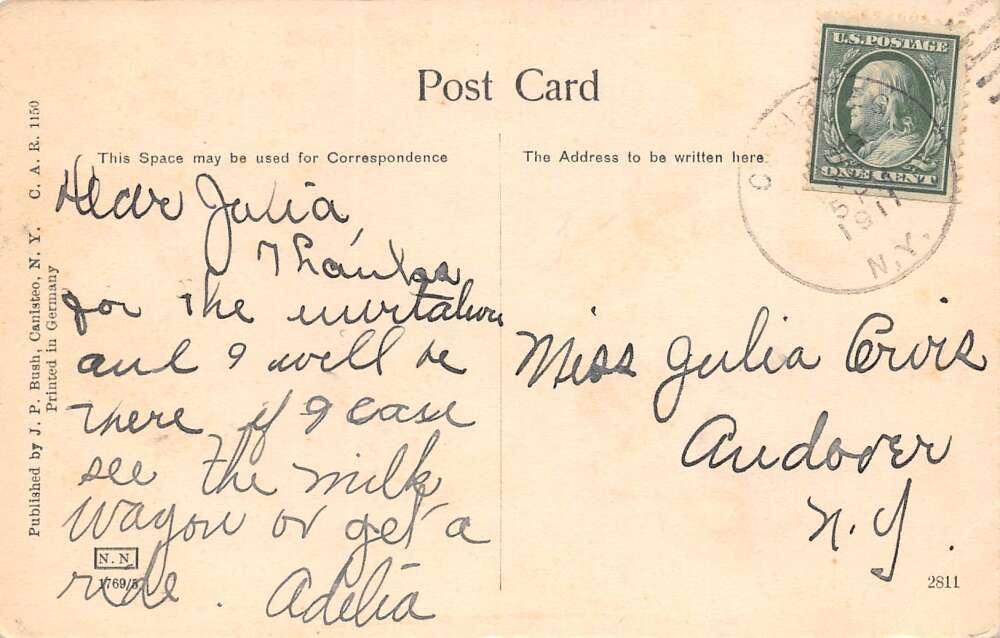 Post Card
This Space may be used for Correspondence
The Address to be written here
U.S. POSTAGE
ONE CENT
5
1911
N.Y.
Published by J. P. Bush, Canisteo, N. Y. C. A. R. 1150
Printed in Germany
Dear Julia,
Thanks
for the invitation
and I will be
there if I case
see the milk
wagon or get a
ride. Adelia
N. N.
1769/5
Miss Julia
Andover
N.Y.
2811